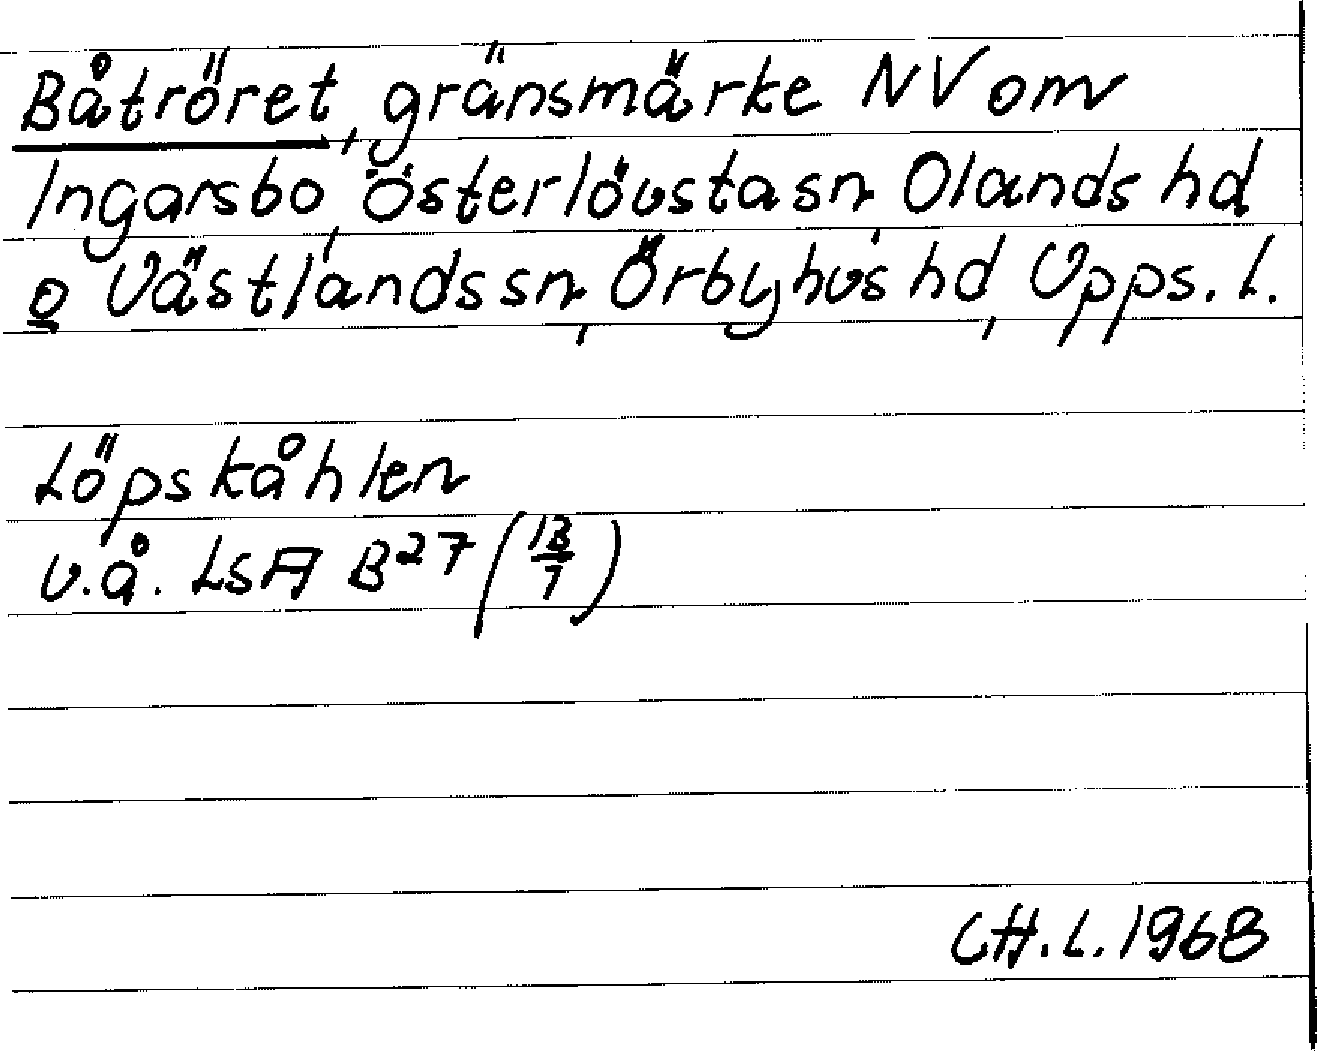 Båtröret, gränsmärke NV om
Ingarsbo, Österlövsta sn Olands hd
o Västlands sn, Örbyhus hd, Upps. l.
Löpskåhlen
u.å. LSA B27 (13/7)
CH.L. 1968